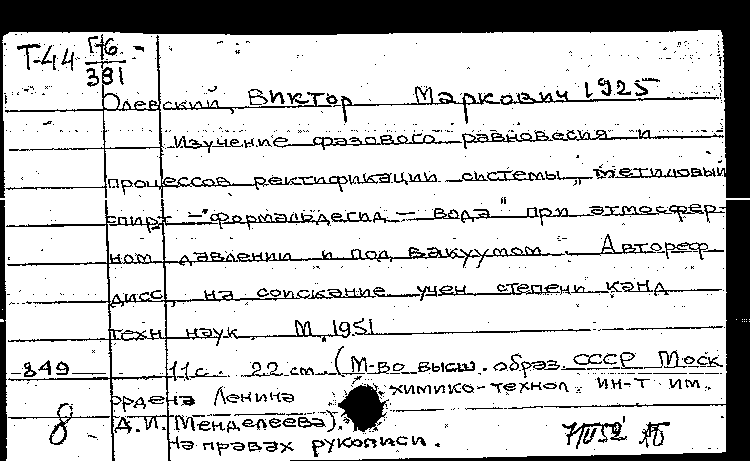 Т-44 Г-6
381
Олевский, Виктор Маркович 1925
Изучение фазового равновесия и
процессов ректификации системы „метиловый
спирт — формальдегид — вода" при атмосфер-
ном давлении и под вакуумом. Автореф.
дисс. на соискание учен. степени канд.
техн. наук. М. 1951
849 11 с. 22 см. (М-во высш. образ. СССР Моск
ордена Ленина химико-технол. ин-т им.
8 Д. И. Менделеева).
На правах рукописи.